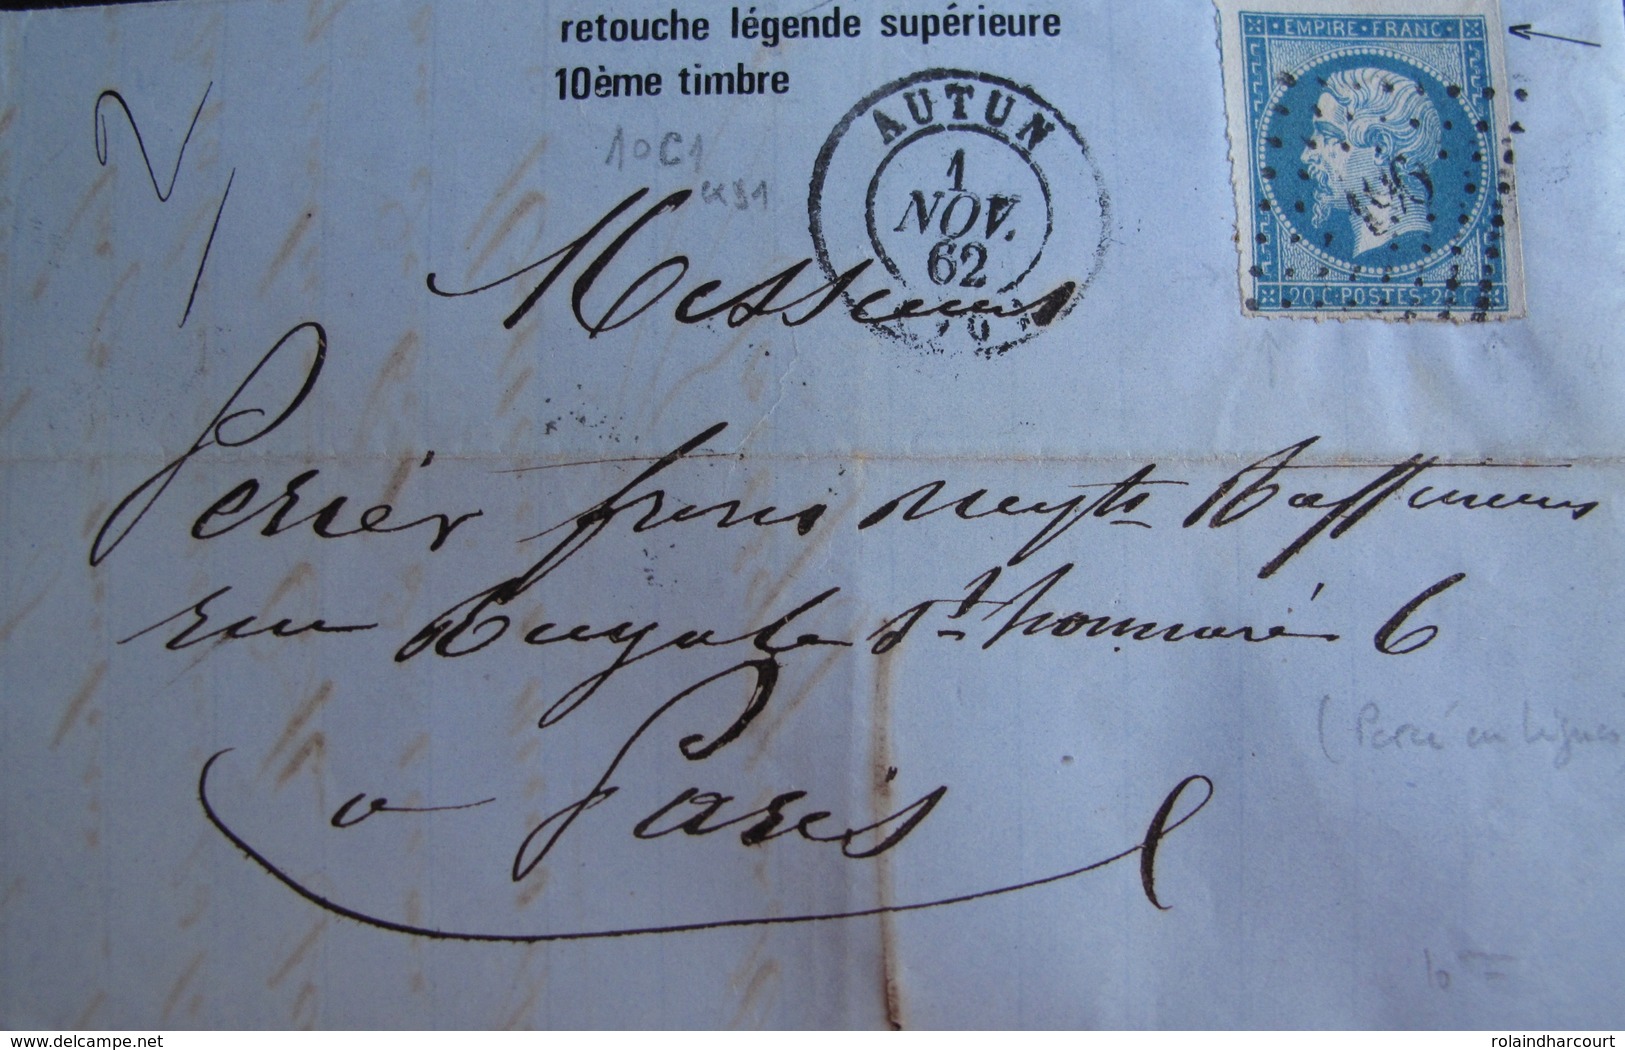 retouche légende supérieure
10ème timbre
EMPIRE · FRANC
AUTUN
1
NOV.
62
10C1
20 C · POSTES · 20 C
Messieurs
Perier frères Negts Raffineurs
rue Royale St honnoré 6
a Paris
(Percé en lignes
10
delcampe.net
rolaindharcourt